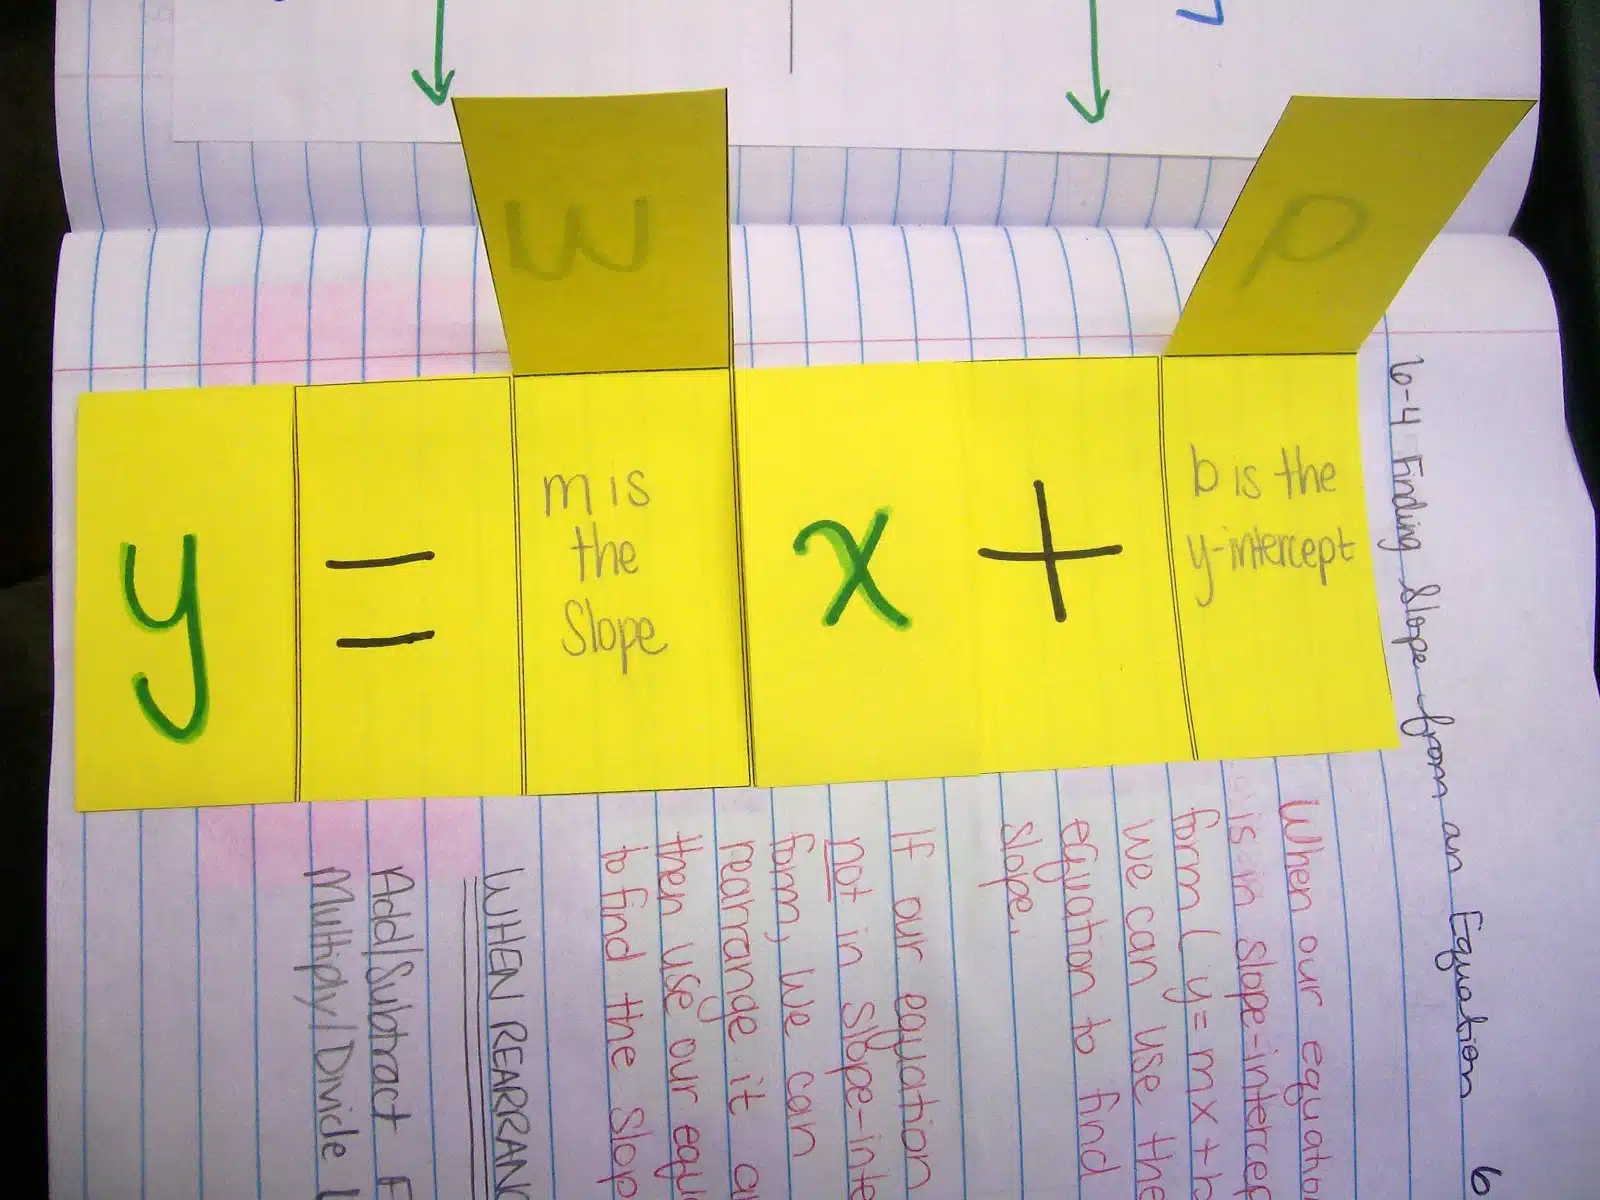 y = m is the Slope x + b is the y-intercept
6-4 Finding Slope from an Equation 6
When our
is in Slope-
form (y = mx + b
we can use the
equation to find
slope.
If our equation
not in Slope-
form, we can
rearrange it
then use our
to find the
WHEN
Add/Subtract
Multiply/Divide